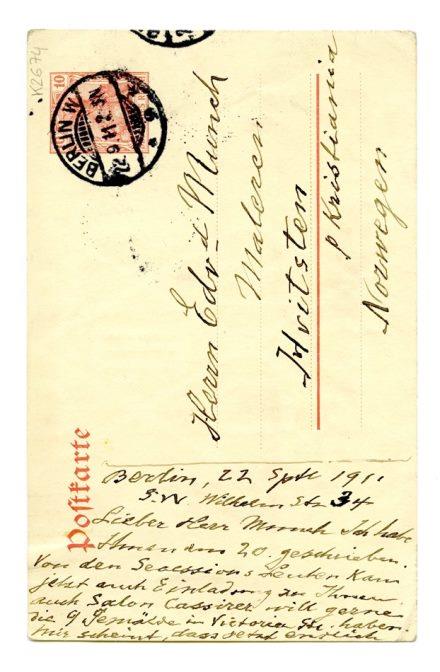 K2674
10
BERLIN W
Postkarte
Herrn Edvd Munch
Maleren
Hvitsten
p Kristiania
Norwegen
Berlin, 22 Spt 1911
S.W. Wilhelm Str 34
Lieber Herr Munch Ich habe
Ihnen am 20. geschrieben.
Von den Secessions Leuten kam
jetzt auch Einladung zu Ihnen.
auch Salon Cassirer will gerne
die 9 Gemälde in Victoria Str. haben.
Mir scheint, dass jetzt endlich